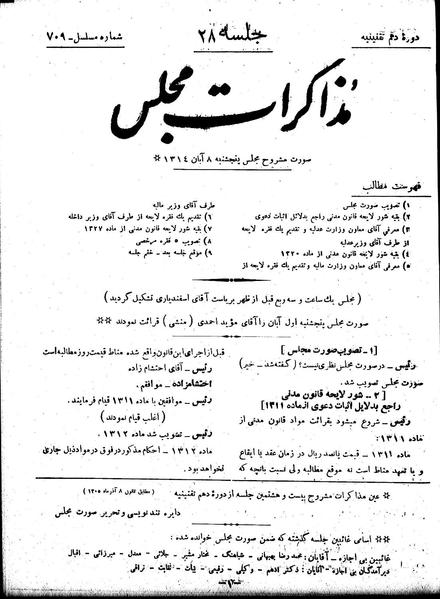 دورهٔ دهم تقنینیه
جلسه ۲۸
شماره مسلسل - ۷۰۹
مذاکرات مجلس
صورت مشروح مجلس پنجشنبه ۸ آبان ۱۳۱۴ *
فهرست مطالب
۱) تصویب صورت مجلس
۲) بقیه شور لایحه قانون مدنی راجع بدلائل اثبات دعوی
۳) معرفی آقای معاون وزارت عدلیه و تقدیم یک فقره لایحه
از طرف آقای وزیر عدلیه
۴) بقیه شور لایحه قانون مدنی از ماده ۱۳۲۰
۵) معرفی آقای معاون وزارت مالیه و تقدیم یک فقره لایحه از
طرف آقای وزیر مالیه
۶) تقدیم یک فقره لایحه از طرف آقای وزیر داخله
۷) بقیه شور لایحه قانون مدنی از ماده ۱۳۲۷
۸) تصویب ۵ فقره مرخصی
۹) موقع جلسه بعد - ختم جلسه
(مجلس یک ساعت و سه ربع قبل از ظهر بریاست آقای اسفندیاری تشکیل گردید)
صورت مجلس پنجشنبه اول آبان را آقای مؤید احمدی (منشی) قرائت نمودند **
[۱ - تصویب صورت مجلس]
رئیس - در صورت مجلس نظری نیست؟ (گفته شد - خیر)
صورت مجلس تصویب شد.
[۲ - شور لایحه قانون مدنی
راجع بدلایل اثبات دعوی از ماده ۱۳۱۱]
رئیس - شروع میشود بقرائت مواد قانون مدنی از
ماده ۱۳۱۱:
ماده ۱۳۱۱ - قیمت پانصد ریال در زمان عقد یا ایقاع
و یا تعهد مناط است نه موقع مطالبه ولی نسبت بآنچه که
قبل از اجرای این قانون واقع شده مناط قیمت روز مطالبه است
رئیس - آقای احتشام زاده
احتشامزاده - موافقم.
رئیس - موافقین با ماده ۱۳۱۱ قیام فرمایند.
(اغلب قیام نمودند)
رئیس - تصویب شد ماده ۱۳۱۲.
ماده ۱۳۱۲ - احکام مذکور در فوق در موارد ذیل جاری
نخواهد بود.
* عین مذاکرات مشروح بیست و هشتمین جلسه از دوره دهم تقنینیه (مطابق قانون ۸ آذر ماه ۱۳۰۵)
دایره تندنویسی و تحریر صورت مجلس
** اسامی غائبین جلسه گذشته که ضمن صورت مجلس خوانده شده:
غائبین بی اجازه - آقایان: محمد رضا بهبهانی - شباهنگ - مختار مشیر - جلائی - معدل - میرزائی - اقبال
دیر آمدگان بی اجازه - آقایان: دکتر ادهم - وکیلی - رفیعی - بیات - نقابت - نراقی